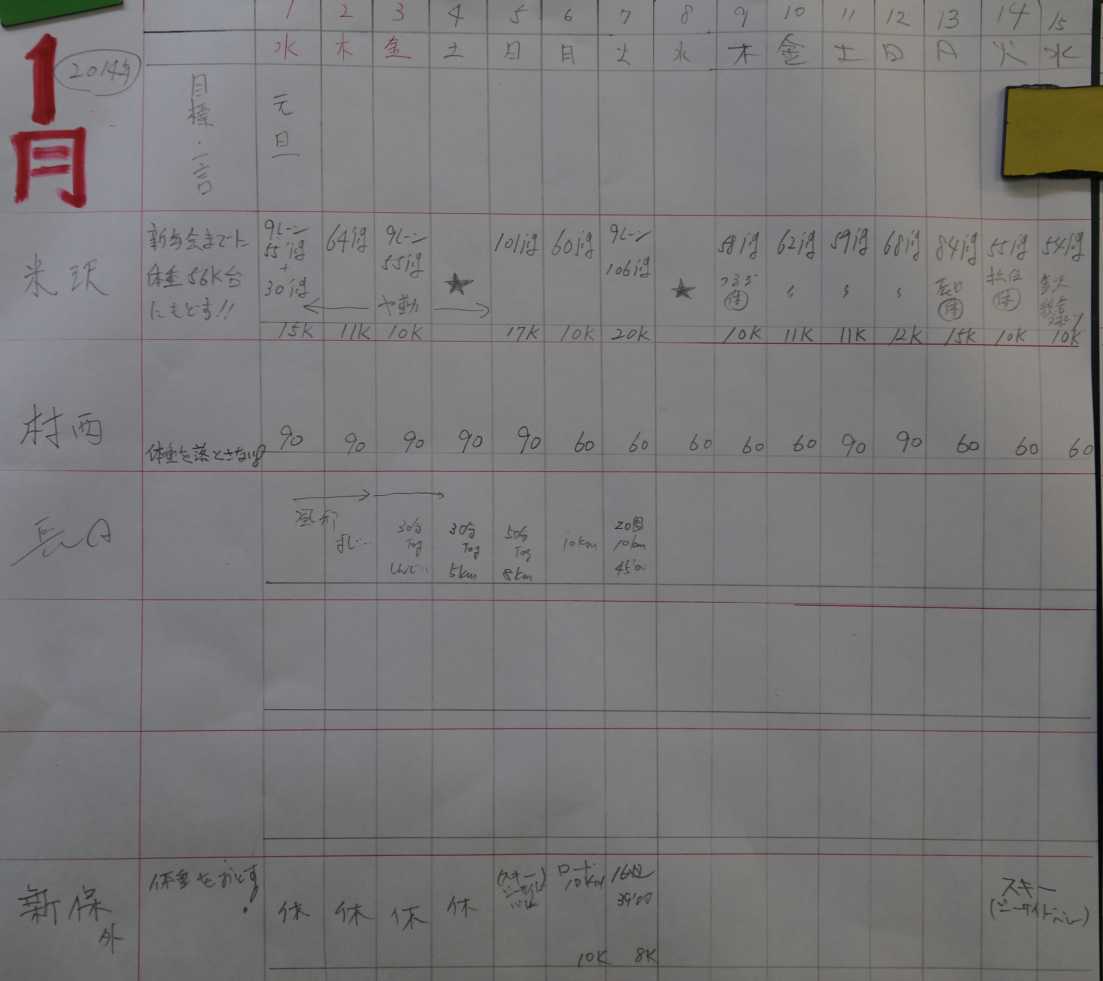 1月
2014年
1 2 3 4 5 6 7 8 9 10 11 12 13 14 15
水 木 金 土 日 月 火 水 木 金 土 日 月 火 水
目標・一言
元旦
米沢
新年会までに
体重56K台
にもどす!!
9レーン
55周
+
30周
64周
9レーン
55周
★
101周
60周
9レーン
106周
★
58周
62周
59周
68周
84周
55周
54周
15K 11K 10K 17K 10K 20K 10K 11K 11K 12K 15K 10K 10K
村西
体重を落とさない
90 90 90 90 90 60 60 60 60 60 90 90 60 60 60
長田
30分
Jog
30分
Jog
5km
50分
Jog
8km
10km
20周
10km
45'00
新保
外
体重をおとす!
休 休 休 休
スキー
ロード
10Km
16周
39'00
10K 8K
スキー